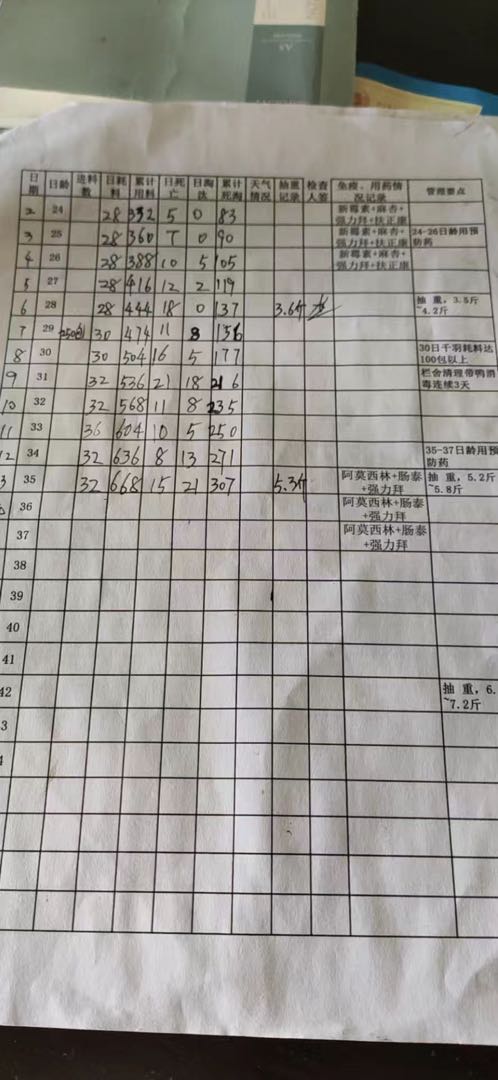 日期 日龄 进料数 日耗料 累计用料 日死亡 日淘汰 累计死淘 天气情况 抽重记录 检查人签 免疫、用药情况记录 管理要点
2 24 28 332 5 0 83 新霉素+麻杏+强力拜+扶正康
3 25 28 360 7 0 90 新霉素+麻杏+强力拜+扶正康 24-26日龄用预防药
4 26 28 388 10 5 105 新霉素+麻杏+强力拜+扶正康
5 27 28 416 12 2 119
6 28 28 444 18 0 137 3.6斤 抽 重,3.5斤~4.2斤
7 29 250包 30 474 11 8 156
8 30 30 504 16 5 177 30日千羽耗料达100包以上
9 31 32 536 21 18 216 栏舍清理带鸭消毒连续3天
10 32 32 568 11 8 235
11 33 36 604 10 5 250
12 34 32 636 8 13 271 35-37日龄用预防药
3 35 32 668 15 21 307 5.3斤 阿莫西林+肠泰+强力拜 抽 重,5.2斤~5.8斤
36 阿莫西林+肠泰+强力拜
37 阿莫西林+肠泰+强力拜
38
39
40
41
42 抽 重,6.
~7.2斤
3